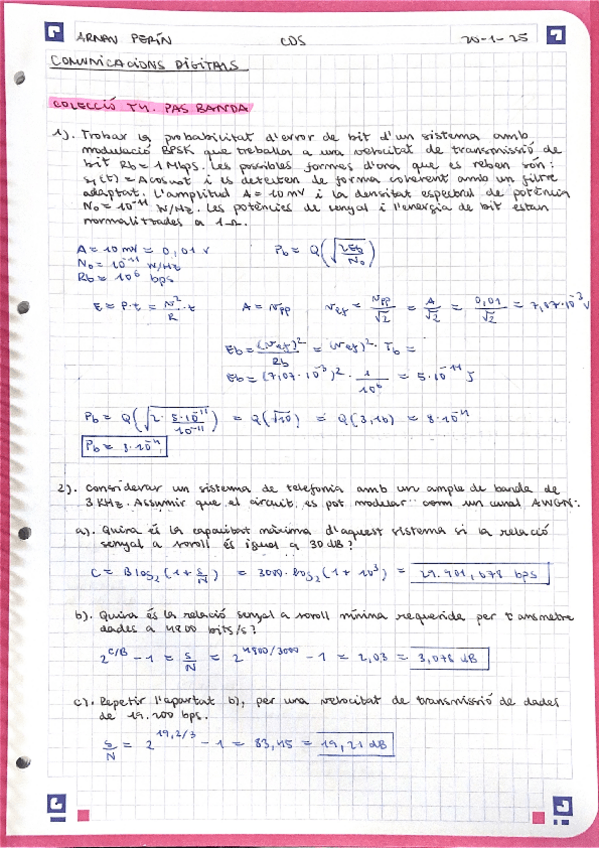 ARNAU PERÍN CDS 20-1-25
COMUNICACIONS DIGITALS
COLECCIÓ T4. PAS BANDA
1). Trobar la probabilitat d'error de bit d'un sistema amb
modulació BPSK que treballa a una velocitat de transmissió de
bit Rb = 1 Mbps. Les possibles formes d'ona que es reben són:
s₁(t) = A cos ω₀t i es detecten de forma coherent amb un filtre
adaptat. L'amplitud A = 10 mV i la densitat espectral de potència
N₀ = 10⁻¹¹ W/Hz. Les potències de senyal i l'energia de bit estan
normalitzades a 1Ω.
A = 10 mV = 0,01 V P_b = Q(√(2Eb/N₀))
N₀ = 10⁻¹¹ W/Hz
Rb = 10⁶ bps
E = P·t = V²/R · t A = Vpp Vef = Vpp/√2 = A/√2 = 0,01/√2 = 7,07·10⁻³ V
Eb = (Vef)²/Rb = (Vef)² · Tb =
Eb = (7,07·10⁻³)² · 1/10⁶ = 5·10⁻¹¹ J
Pb = Q(√(2 · 5·10⁻¹¹/10⁻¹¹)) = Q(√10) = Q(3,16) = 8·10⁻⁴
Pb = 8·10⁻⁴
2). Considerar un sistema de telefonia amb un ample de banda de
3 KHz. Assumir que el circuit es pot modular com un canal AWGN:
a). Quina és la capacitat màxima d'aquest sistema si la relació
senyal a soroll és igual a 30 dB?
C = B log₂(1 + S/N) = 3000 · log₂(1 + 10³) = 29.901,678 bps
b). Quina és la relació senyal a soroll mínima requerida per transmetre
dades a 4800 bits/s?
2^(C/B) - 1 = S/N = 2^(4800/3000) - 1 = 2,03 = 3,078 dB
c). Repetir l'apartat b), per una velocitat de transmissió de dades
de 19.200 bps.
S/N = 2^(19,2/3) - 1 = 83,45 = 19,21 dB